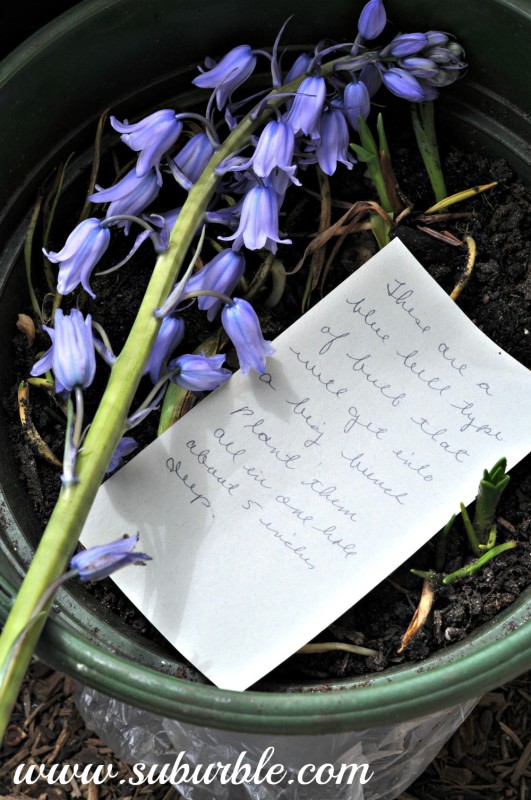 These are a
blue bell type
of bulb that
will get into
a big bunch
plant them
all in one hole
about 5 inches
deep.
www.suburble.com